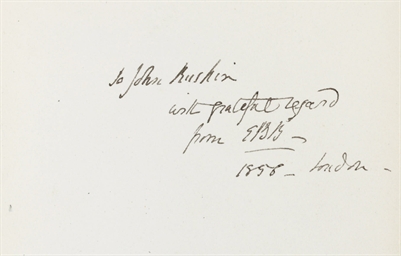 to John Ruskin
with grateful regard
from EBB –
1856 – London –